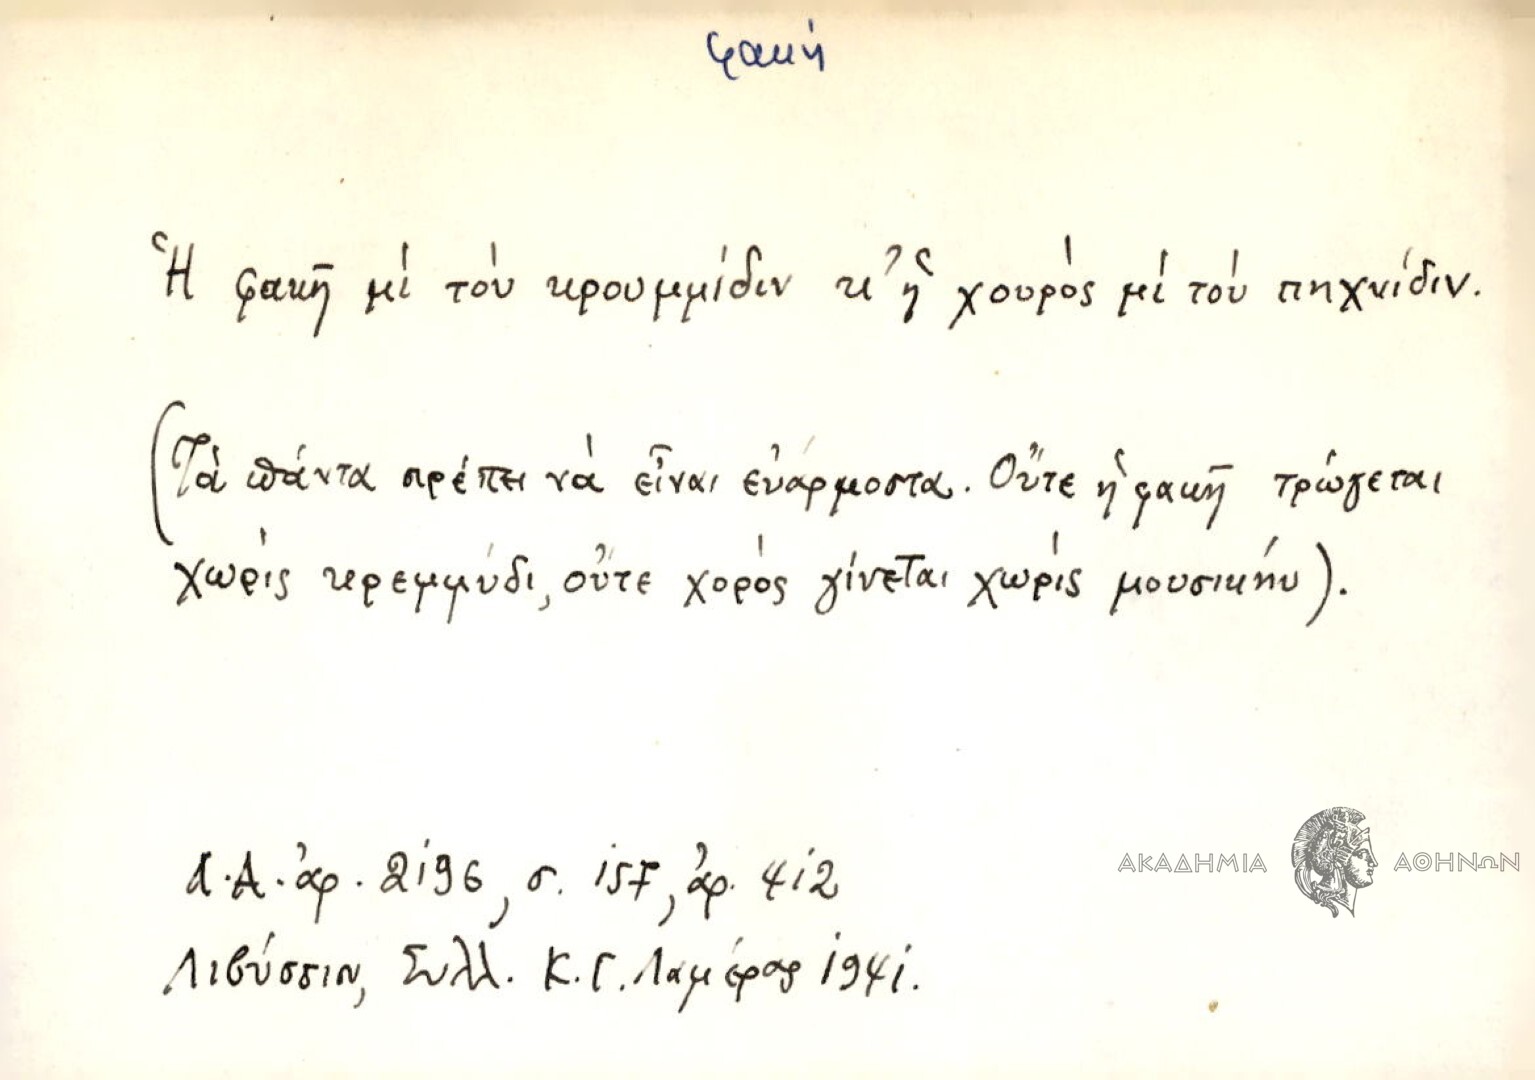 φακή
Ἡ φακῆ μὶ τοὺ κρουμμίδιν κ' ἡ χουρὸς μὶ τοὺ πηχνίδιν.
(Τὰ πάντα πρέπει νὰ εἶναι εὐάρμοστα. Οὔτε ἡ φακῆ τρώγεται
χωρὶς κρεμμύδι, οὔτε χορὸς γίνεται χωρὶς μουσικήν).
Λ.Α. ἀρ. 2196, σ. 157, ἀρ. 412
ΑΚΑΔΗΜΙΑ ΑΘΗΝΩΝ
Λιβύσσιν, Συλλ. Κ. Γ. Λαμέρας 1941.